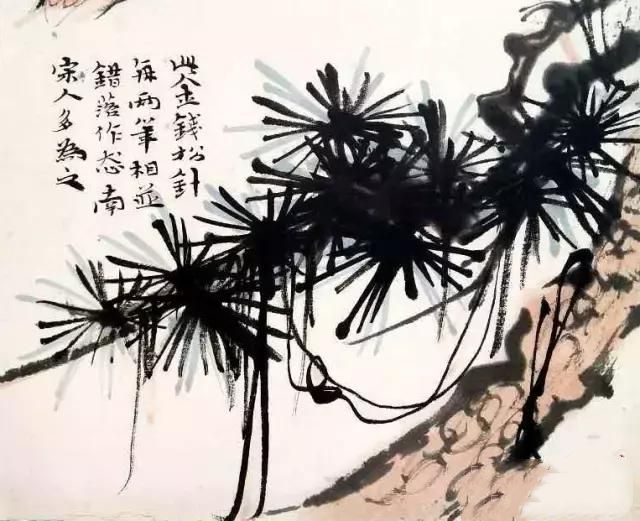 此金錢松針
每兩筆相並
錯落作態南
宋人多為之